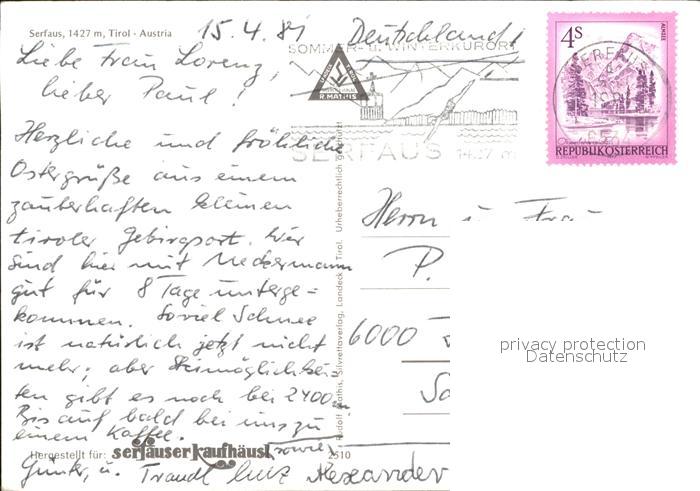 Serfaus, 1427 m, Tirol - Austria
15.4.81
Deutschland!
Liebe Frau Lorenz,
lieber Paul!
Herzliche und fröhliche
Ostergrüße aus einem
zauberhaften kleinen
tiroler Gebirgsort. Wir
sind hier mit Neckermann
gut für 8 Tage unterge=
kommen. Soviel Schnee
ist natürlich jetzt nicht
mehr, aber Skimöglichkei=
ten gibt es noch bei 2400 m
Bis auf bald bei uns zu
einem Kaffee.
sowie
u. Traudl
Alexander
Hergestellt für: serfauser kaufhäusl
2510
Rudolf Mathis, Silvrettaverlag, Landeck - Tirol. Urheberrechtlich geschützt
SOMMER- u. WINTERKURORT
R. MATHIS
SERFAUS 1427 m
4S
ALMSEE
REPUBLIK ÖSTERREICH
SERFAUS
Herrn u. Frau
P.
6000
privacy protection
Datenschutz